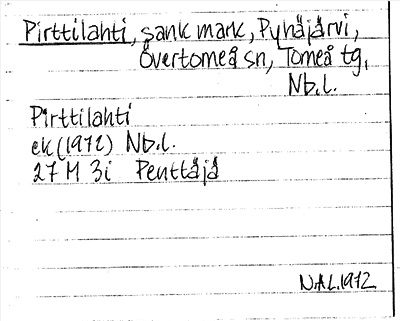 Pirttilahti, sank mark, Pyhäjärvi,
Övertorneå sn, Torneå tg,
Nb.l.
Pirttilahti
ek (1972) Nb.l.
27 M 3i Penttäjä
N.Äl. 1972